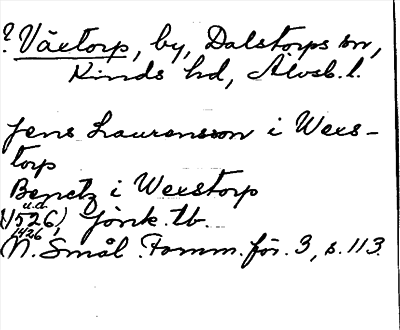 ? Växtorp, by, Dalstorps sn,
Kinds hd, Älvsb. l.
Jens Laurensson i Wexs-
torp
Benctz i Wexstorp
u.d.
(1526) Jönk. tb.
1426
N. Smål. Fornm. för. 3, s. 113.